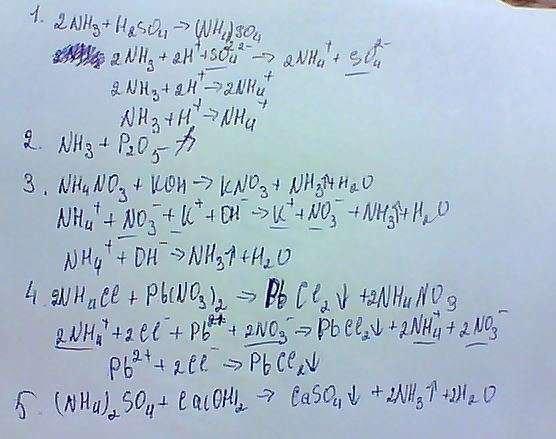 1. 2NH3 + H2SO4 → (NH4)2SO4
2NH3 + 2H⁺ + SO4²⁻ → 2NH4⁺ + SO4²⁻
2NH3 + 2H⁺ → 2NH4⁺
NH3 + H⁺ → NH4⁺
2. NH3 + P2O5 ↛
3. NH4NO3 + KOH → KNO3 + NH3↑ + H2O
NH4⁺ + NO3⁻ + K⁺ + OH⁻ → K⁺ + NO3⁻ + NH3↑ + H2O
NH4⁺ + OH⁻ → NH3↑ + H2O
4. 2NH4Cl + Pb(NO3)2 → PbCl2↓ + 2NH4NO3
2NH4⁺ + 2Cl⁻ + Pb²⁺ + 2NO3⁻ → PbCl2↓ + 2NH4⁺ + 2NO3⁻
Pb²⁺ + 2Cl⁻ → PbCl2↓
5. (NH4)2SO4 + Ca(OH)2 → CaSO4↓ + 2NH3↑ + 2H2O